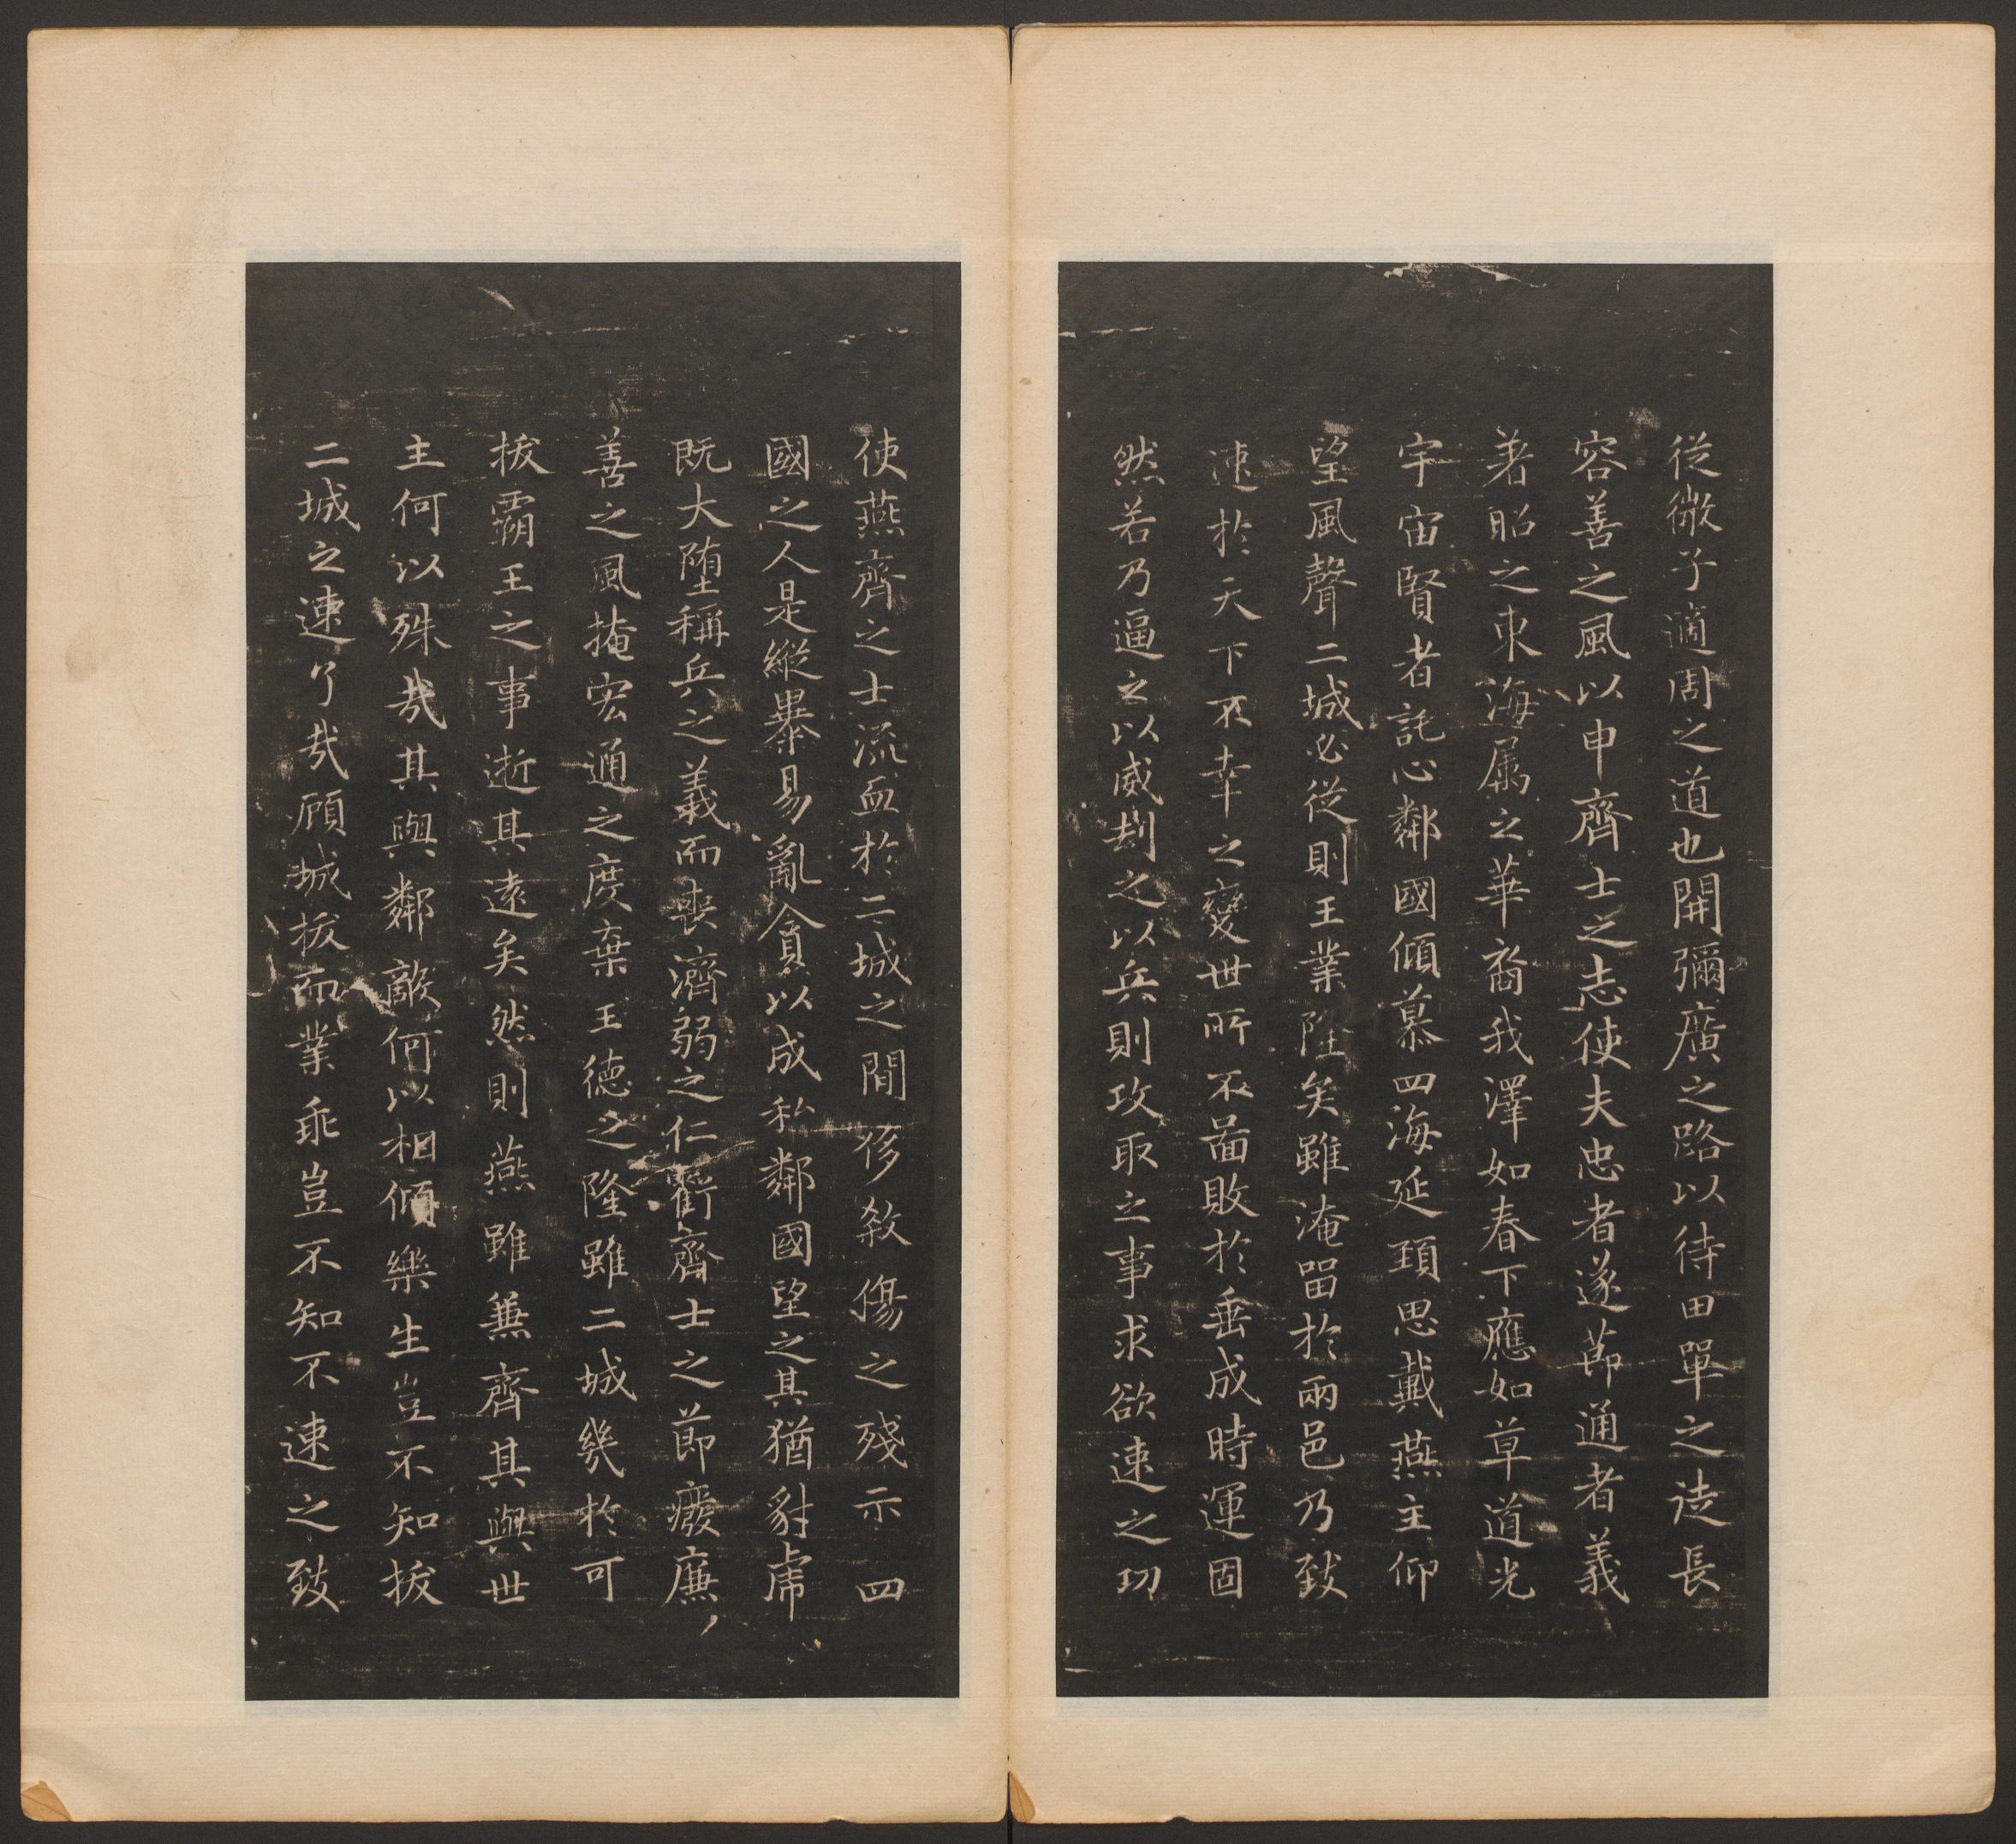 從微子適周之道也開彌廣之路以待田單之徒長
容善之風以申齊士之志使夫忠者遂莭通者義
著昭之東海属之華裔我澤如春下應如草道光
宇宙賢者託心鄰國傾慕四海延頚思戴燕主仰
望風聲二城必從則王業隆矣雖淹留於兩邑乃致
速於天下不幸之變世所不啚敗於垂成時運固
然若乃逼之以威劫之以兵則攻取之事求欲速之功
使燕齊之士流血於二城之間侈煞傷之殘示四
國之人是縱暴易亂貪以成私鄰國望之其猶豺虎
既大堕稱兵之義而喪濟弱之仁虧齊士之莭癈廉
善之風掩宏通之度棄王德之隆雖二城幾於可
拔霸王之事逝其遠矣然則燕雖兼齊其與世
主何以殊哉其與鄰敵何以相傾樂生豈不知拔
二城之速了哉顧城拔而業乖豈不知不速之致